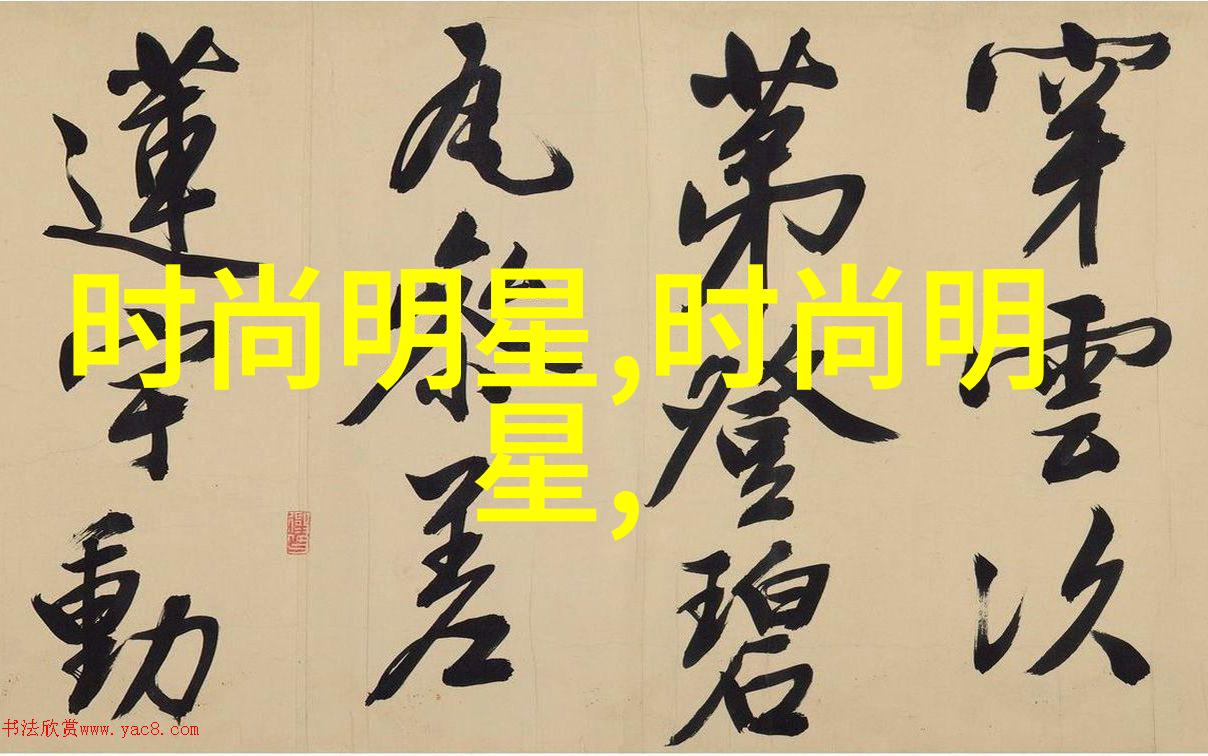 穿雲次
第登碧
瓦參差
蓮宇動
时尚明星,时尚明
星,
书法欣赏www.yac8.com